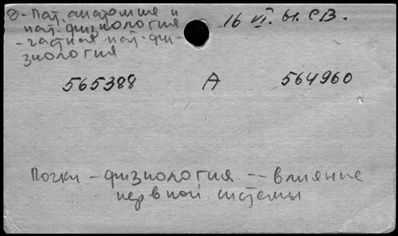 Д - Пат. анатомия и
пат. физиология
- частная пат. фи-
зиология
16 VI. 61. СВ.
565388 А 564960
Почки - физиология -- влияние
нервной системы